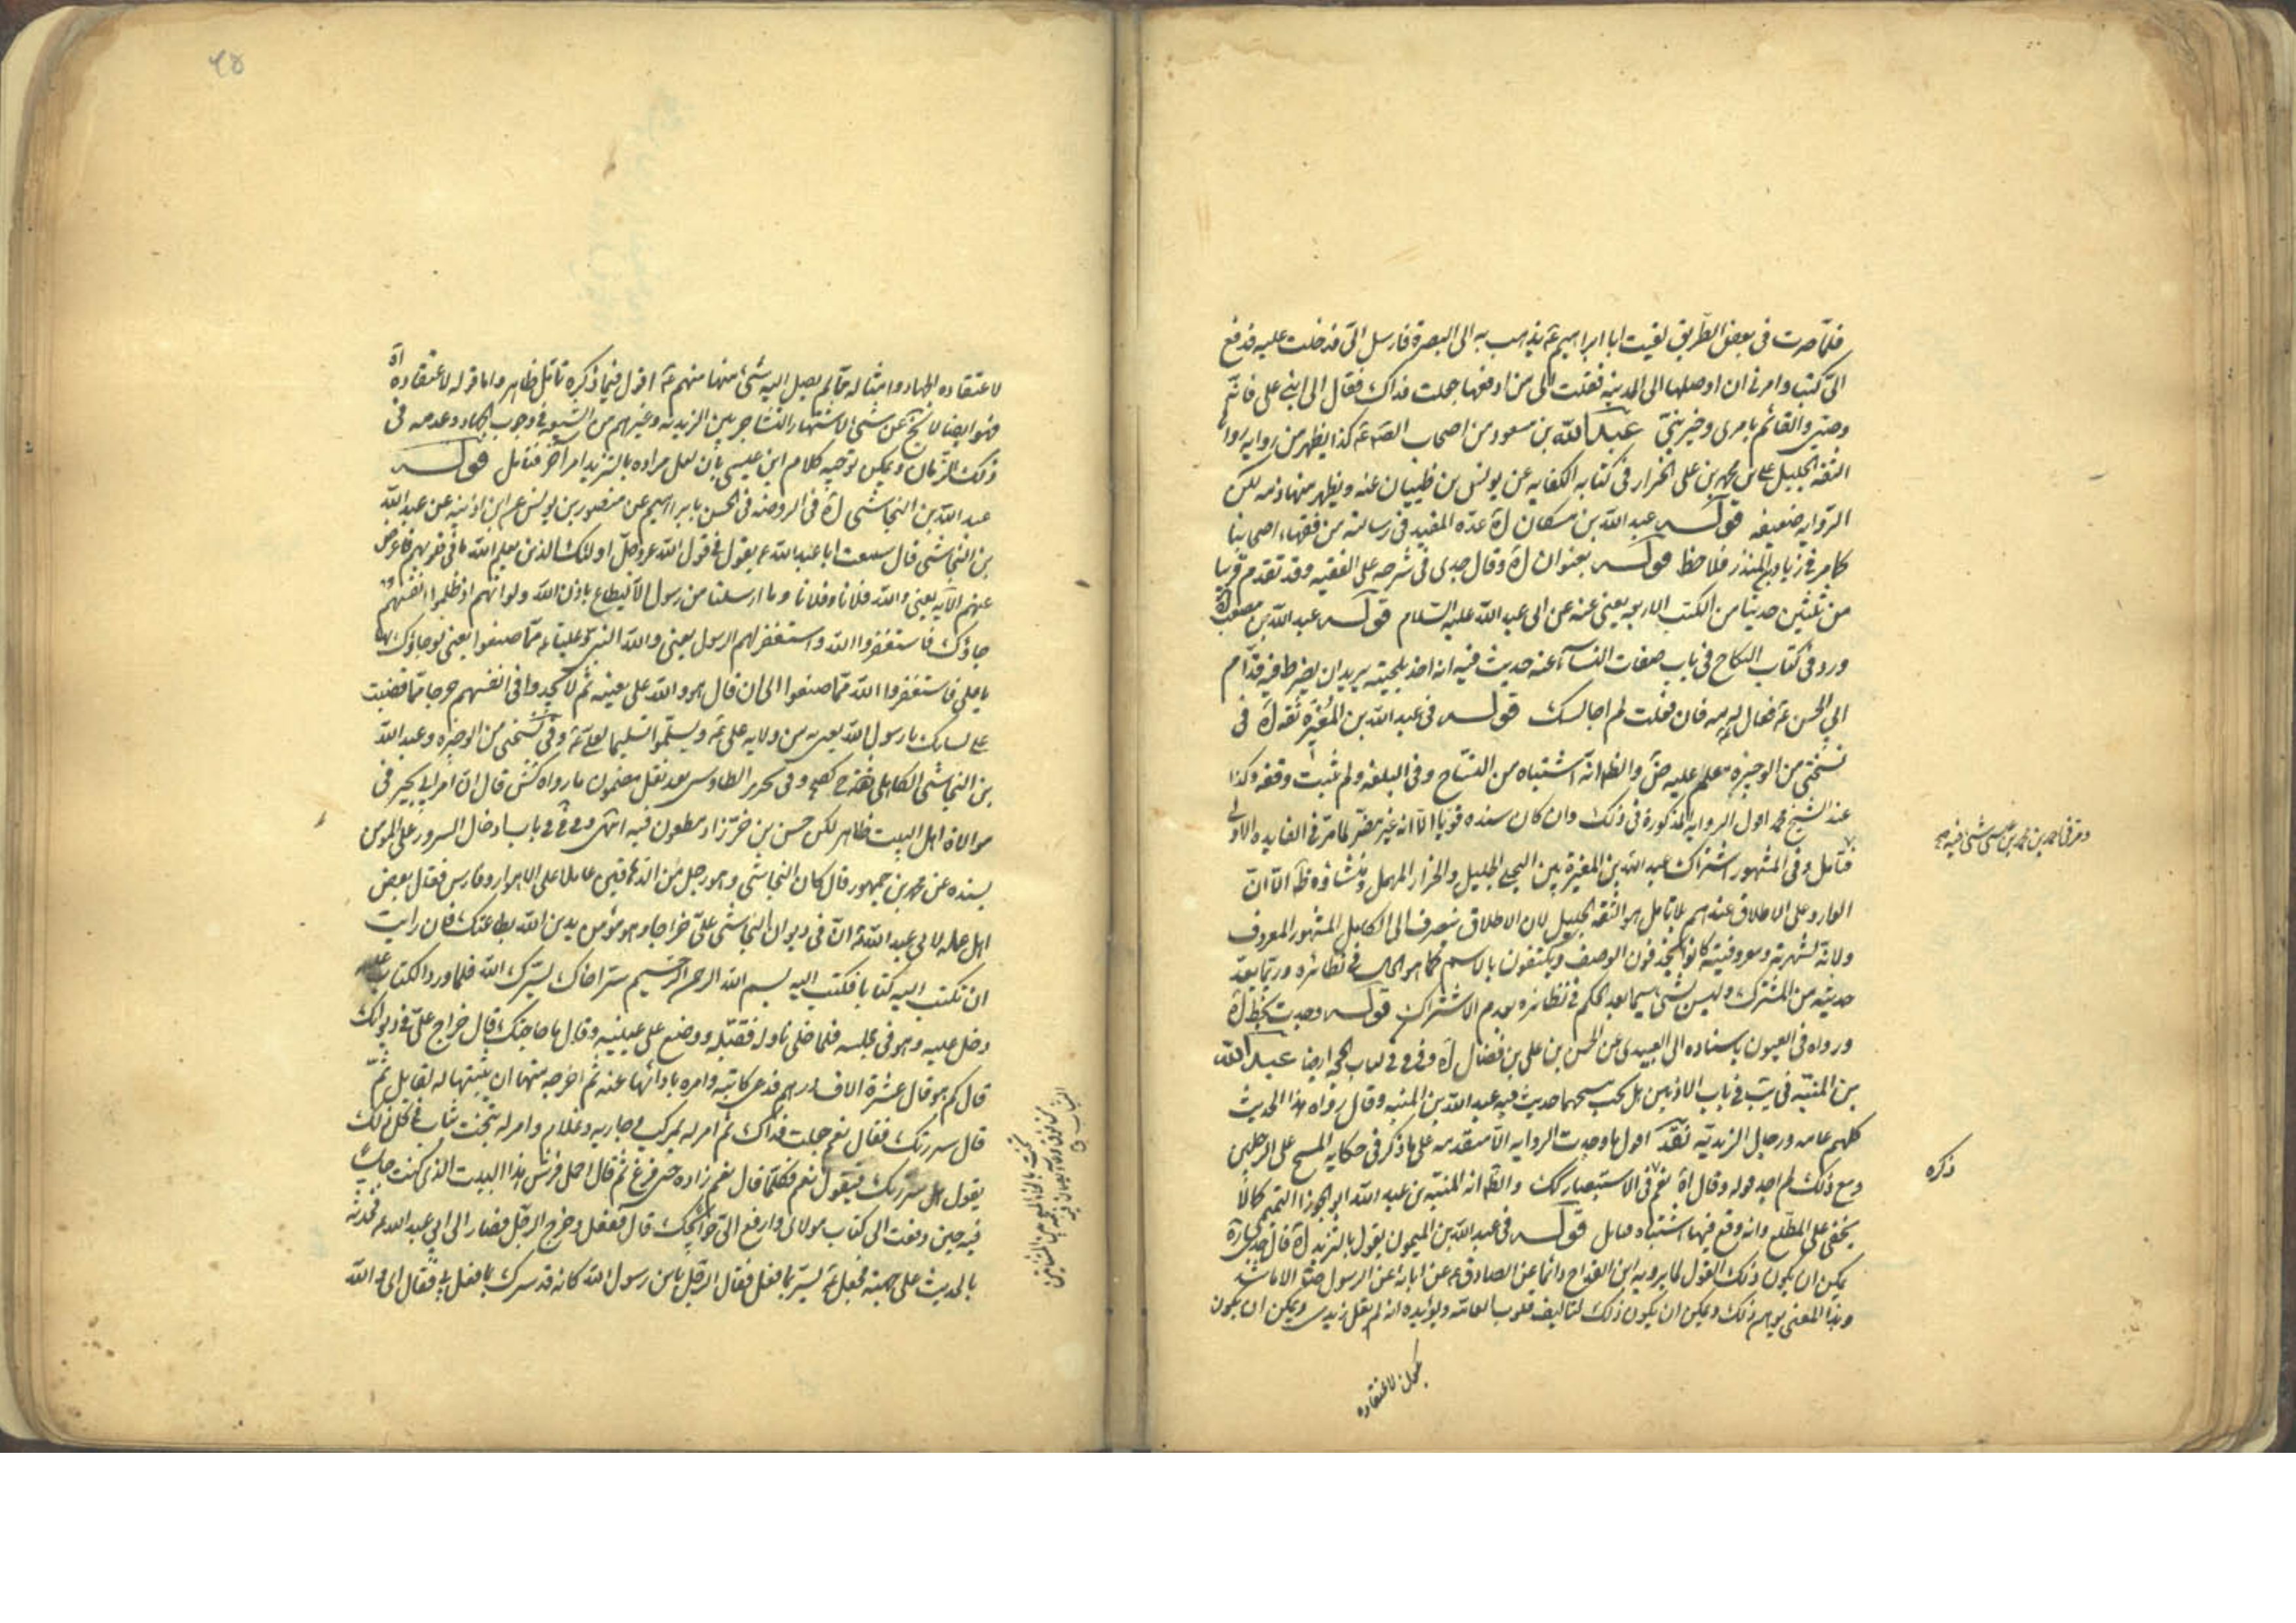 فلمّا صرت فى بعض الطريق لقيت ابا ابراهيم ع يذهب به الى البصرة فارسل الىّ فدخلت عليه فدفع
الىّ كتبا وامرنى ان اوصلها الى المدينة فقلت الى من ادفعها جعلت فداك فقال الى ابنى على فانّه
وصيّى والقائم بامرى وخير بنىّ عبد الله بن مسعود من اصحاب الصّ ع كذا يظهر من رواية رواها
الثقة الجليل على بن محمد بن على الخزار فى كتابه الكفاية عن يونس بن ظبيان عنه ويظهر منها ذمه لكن
الرواية ضعيفة قوله عبد الله بن مسكان اه عدّه المفيد فى رسالته من فقهاء اصحابنا
كما مر فى زياد بن المنذر فلاحظ قوله بعنوان اه وقال جدى فى شرحه على الفقيه وقد تقدم قريبا
من ثلثين حديثا من الكتب الاربعة يعنى عنه عن ابى عبد الله عليه السّلام قوله عبد الله بن مصعب
ورد فى كتاب النكاح فى باب صفات النساء عنه حديث فيه انه اخذ بلحيته يريد ان يضرط فيه قدّام
ابى الحسن ع فقال له مه فان فعلت لم اجالسك قوله فى عبد الله بن المغيرة ثقة اه فى
نسختى من الوجيزة معلم عليه ضّ والظ انه اشتباه من النسّاخ وفى البلغة ولم يثبت وقفه وكذا
عند الشيخ محمد اول الرواية المذكورة فى ذلك وان كان سنده قويّا الّا انه غير مضرّ لما مرّ فى الفايدة الاولى
فتامل وفى المشهور اشتراك عبد الله بن المغيرة بين البجلى الجليل والخزار المهمل ومنشاؤه ظ الّا انّ
الوارد على الاطلاق عندهم بلا تامل هو الثقة الجليل لان الاطلاق ينصرف الى الكامل المشهور المعروف
ولانه لشهرته ومعروفيته كانوا يحذفون الوصف ويكتفون بالاسم كما هو الحال فى نظائره وربّما يعدّ
حديثه من المشترك وليس بشئ سيما بعد الحكم فى نظائره بعدم الاشتراك قوله وجدت بخط اه
ورواه فى العيون باسناده الى العبيدى عن الحسن بن على بن فضال اه وفى فى باب الحجة ايضا عبد الله
بن المنبّه فى يب فى باب الاذنين هل يجب مسحهما حديث فيه عبد الله بن المنبه وقال رواه هذا الحديث
كلهم عامه ورجال الزيدية نقد اقول ما وجدت الرواية الّا متقدمة على ما ذكر فى حكاية المسح على الرجلين
ومع ذلك لم اجد قوله وقال اه نعم فى الاستبصار كك والظ انه المنبّه بن عبد الله ابو الجوزا التميمى كما لا
يخفى على المطّلع وانه وقع فيها اشتباه فتامل قوله فى عبد الله بن الميمون يقول بالتزيد اه قال جدى ره
يمكن ان يكون ذلك القول لما يرويه ابن القداح دائما عن الصادق ع عن ابائه عن الرسول ص الا ما شذ
وهذا المعنى يوهم ذلك ويمكن ان يكون ذلك لتاليف قلوب العامّة ويؤيده انه لم يقل زيدى ويمكن ان يكون
ومر فى احمد بن محمد بن عيسى شئ فيه
ذكره
لاعتقاده
لاعتقاده الجهاد وامثاله ممّا لم يصل اليه شئ منها منهم ع اقول فيما ذكره تامّل ظاهر واما قوله لاعتقاده اه
فهو ايضا لا يخ عن شئ لاشتهار التشاجر بين الزيدية وغيرهم من الشيعة فى وجوب الجهاد وعدمه فى
ذلك الزمان ويمكن توجيه كلام ابن عيسى بان لعل مراده بالتزيد امر آخر فتامل قوله
عبد الله بن النجاشى اه فى الروضة فى الحسن بابراهيم عن منصور بن يونس عن ابن اذينة عن عبد الله
بن النجاشى قال سمعت ابا عبد الله ع يقول فى قول الله عزوجلّ اولئك الذين يعلم الله ما فى قلوبهم فاعرض
عنهم الآية يعنى والله فلانا وفلانا وما ارسلنا من رسول الّا ليطاع باذن الله ولو انهم اذ ظلموا انفسهم
جاؤك فاستغفروا الله واستغفر لهم الرسول يعنى والله النبى ص وعليّا ع ممّا صنعوا يعنى لو جاؤك بها
يا على فاستغفروا الله ممّا صنعوا الى ان قال هو والله على بعينه ثم لا يجدوا فى انفسهم حرجا ممّا قضيت
على لسانك يا رسول الله يعنى به من ولاية على ع ويسلّموا تسليما لعلى ع وفى نسختى من الوجيزة وعبد الله
بن النجاشى الكاهلى وفى تحرير الطاوسى بعد نقل مضمون ما رواه كش قال انّ امر ابى بجير فى
موالاة اهل البيت ظاهر لكن حسن بن خرّزاد مطعون فيه انتهى وفى فى باب ادخال السرور على المؤمن
بسنده عن محمد بن جمهور قال كان النجاشى وهو رجل من الدهاقين عاملا على الاهواز وفارس فقال بعض
اهل عمله لابى عبد الله ع انّ فى ديوان النجاشى علىّ خراجا وهو مؤمن يدين الله بطاعتك فان رايت
ان تكتب اليه كتابا فكتب اليه بسم الله الرحمن الرّحيم سرّ اخاك يسرّك الله فلما ورد الكتاب عليه
دخل عليه وهو فى مجلسه فلما خلى ناوله فقبّله ووضع على عينيه وقال ما حاجتك قال خراج علىّ فى ديوانك
قال كم هو قال عشرة الاف درهم فدعى كاتبه وامره بادائها عنه ثم اخرجه منها ان يثبتها له لقابل ثمّ
قال سررتك فقال نعم جعلت فداك ثم امر له بمركب وجارية وغلام وامر له بتخت ثياب فى كل ذلك
يقول هل سررتك فيقول نعم فكلّما قال نعم زاده حتى فرغ ثم قال احمل فرش هذا البيت الذى كنت جالسا
فيه حين دفعت الىّ كتاب مولاى وارفع الىّ حوائجك قال ففعل وخرج الرجل فصار الى ابى عبد الله ع فحدثه
بالحديث على جهته فجعل ع يسر بما فعل فقال الرجل يابن رسول الله كانه قد سرك بما فعل بى فقال اى والله